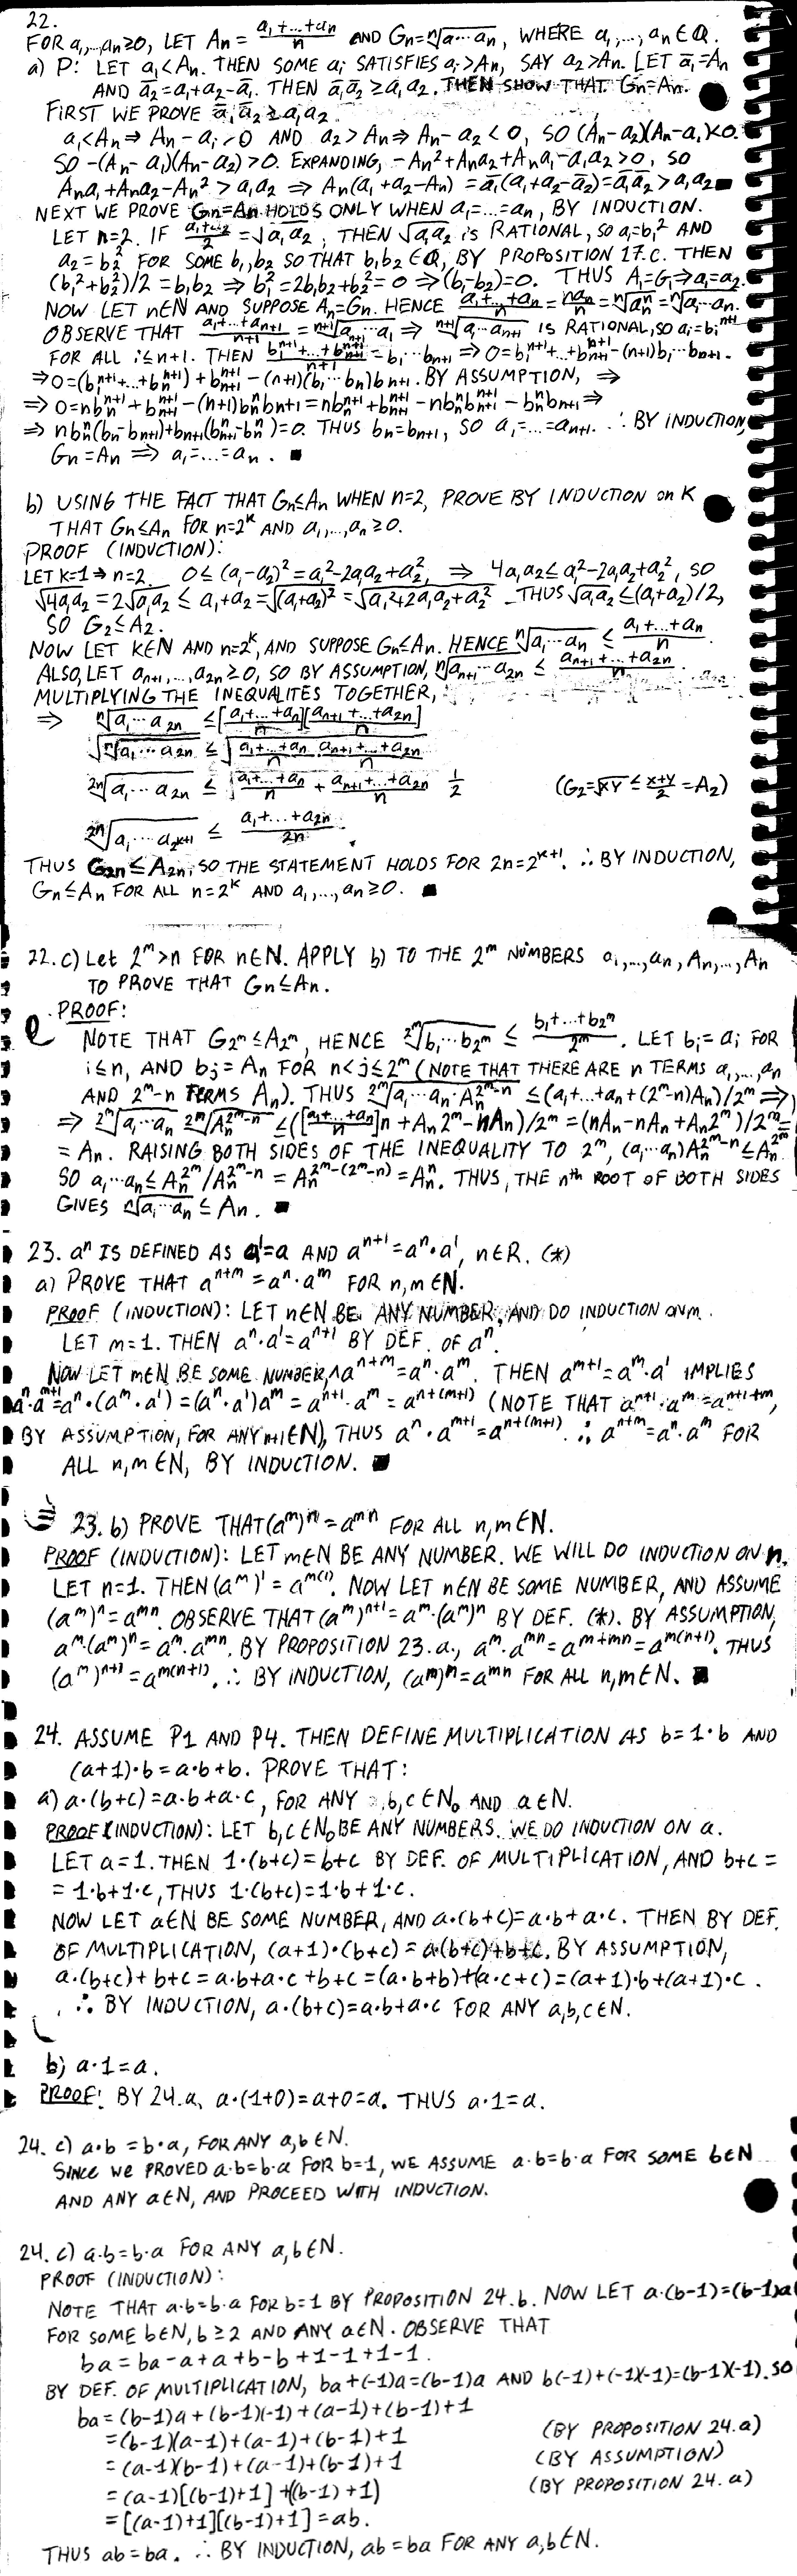 22.
FOR a₁,...,aₙ≥0, LET Aₙ = (a₁+...+aₙ)/n AND Gₙ=ⁿ√(a₁...aₙ), WHERE a₁,...,aₙ∈Q.
a) P: LET a₁<Aₙ. THEN SOME aᵢ SATISFIES aᵢ>Aₙ, SAY a₂>Aₙ. LET ā₁=Aₙ
AND ā₂=a₁+a₂-ā₁. THEN ā₁ā₂≥a₁a₂. THEN SHOW THAT Gₙ=Aₙ.
FIRST WE PROVE ā₁ā₂≥a₁a₂.
a₁<Aₙ⇒Aₙ-a₁>0 AND a₂>Aₙ⇒Aₙ-a₂<0, SO (Aₙ-a₂)(Aₙ-a₁)<0.
SO -(Aₙ-a₁)(Aₙ-a₂)>0. EXPANDING, -Aₙ²+Aₙa₂+Aₙa₁-a₁a₂>0, SO
Aₙa₁+Aₙa₂-Aₙ²>a₁a₂ ⇒ Aₙ(a₁+a₂-Aₙ)=ā₁(a₁+a₂-ā₂)=ā₁ā₂>a₁a₂ ■
NEXT WE PROVE Gₙ=Aₙ HOLDS ONLY WHEN a₁=...=aₙ, BY INDUCTION.
LET n=2. IF (a₁+a₂)/2=√(a₁a₂), THEN √(a₁a₂) IS RATIONAL, SO a₁=b₁² AND
a₂=b₂² FOR SOME b₁,b₂ SO THAT b₁b₂∈Q, BY PROPOSITION 17.C. THEN
(b₁²+b₂²)/2=b₁b₂ ⇒ b₁²=2b₁b₂+b₂²=0 ⇒(b₁-b₂)=0. THUS A₁=G₁⇒a₁=a₂.
NOW LET n∈N AND SUPPOSE Aₙ=Gₙ. HENCE (a₁+...+aₙ)/n=naₙ/n=ⁿ√aₙⁿ=ⁿ√(a₁...aₙ).
OBSERVE THAT (a₁+...+aₙ₊₁)/(n+1)=ⁿ⁺¹√(a₁...a₁) ⇒ ⁿ⁺¹√(a₁...aₙ₊₁) IS RATIONAL, SO aᵢ=bᵢⁿ⁺¹
FOR ALL i≤n+1. THEN (b₁ⁿ⁺¹+...+bₙ₊₁ⁿ⁺¹)/(n+1)=b₁...bₙ₊₁ ⇒ 0=b₁ⁿ⁺¹+...+bₙ₊₁ⁿ⁺¹-(n+1)b₁...bₙ₊₁.
⇒0=(b₁ⁿ⁺¹+...+bₙⁿ⁺¹)+bₙ₊₁ⁿ⁺¹-(n+1)(b₁...bₙ)bₙ₊₁. BY ASSUMPTION, ⇒
⇒ 0=nbₙⁿ⁺¹+bₙ₊₁ⁿ⁺¹-(n+1)bₙⁿbₙ₊₁=nbₙⁿ⁺¹+bₙ₊₁ⁿ⁺¹-nbₙⁿbₙ₊₁-bₙⁿbₙ₊₁⇒
⇒ nbₙⁿ(bₙ-bₙ₊₁)+bₙ₊₁(bₙ₊₁ⁿ-bₙⁿ)=0. THUS bₙ=bₙ₊₁, SO a₁=...=aₙ₊₁. ∴ BY INDUCTION,
Gₙ=Aₙ ⇒ a₁=...=aₙ. ■
b) USING THE FACT THAT Gₙ≤Aₙ WHEN n=2, PROVE BY INDUCTION on K
THAT Gₙ≤Aₙ FOR n=2ᵏ AND a₁,...,aₙ≥0.
PROOF (INDUCTION):
LET K=1⇒n=2. 0≤(a₁-a₂)²=a₁²-2a₁a₂+a₂², ⇒ 4a₁a₂≤a₁²-2a₁a₂+a₂², SO
√(4a₁a₂)=2√(a₁a₂)≤a₁+a₂=√((a₁+a₂)²)=√(a₁²+2a₁a₂+a₂²). THUS √(a₁a₂)≤(a₁+a₂)/2,
SO G₂≤A₂.
NOW LET K∈N AND n=2ᵏ, AND SUPPOSE Gₙ≤Aₙ. HENCE ⁿ√(a₁...aₙ) ≤ (a₁+...+aₙ)/n.
ALSO, LET aₙ₊₁,...,a₂ₙ≥0, SO BY ASSUMPTION, ⁿ√(aₙ₊₁...a₂ₙ) ≤ (aₙ₊₁+...+a₂ₙ)/n.
MULTIPLYING THE INEQUALITES TOGETHER,
⇒ ⁿ√(a₁...a₂ₙ) ≤ [(a₁+...+aₙ)/n][(aₙ₊₁+...+a₂ₙ)/n]
√(ⁿ√(a₁...a₂ₙ)) ≤ √((a₁+...+aₙ)/n · (aₙ₊₁+...+a₂ₙ)/n)
²ⁿ√(a₁...a₂ₙ) ≤ [(a₁+...+aₙ)/n + (aₙ₊₁+...+a₂ₙ)/n] 1/2 (G₂=√(xy)≤(x+y)/2=A₂)
²ⁿ√(a₁...a₂ᵏ⁺¹) ≤ (a₁+...+a₂ₙ)/2n.
THUS G₂ₙ≤A₂ₙ, SO THE STATEMENT HOLDS FOR 2n=2ᵏ⁺¹. ∴ BY INDUCTION,
Gₙ≤Aₙ FOR ALL n=2ᵏ AND a₁,...,aₙ≥0. ■
22. c) Let 2ᵐ>n FOR n∈N. APPLY b) TO THE 2ᵐ NUMBERS a₁,...,aₙ,Aₙ,...,Aₙ
TO PROVE THAT Gₙ≤Aₙ.
PROOF:
NOTE THAT G₂ᵐ≤A₂ᵐ, HENCE ²ᵐ√(b₁...b₂ᵐ) ≤ (b₁+...+b₂ᵐ)/2ᵐ. LET bᵢ=aᵢ FOR
i≤n, AND bⱼ=Aₙ FOR n<j≤2ᵐ (NOTE THAT THERE ARE n TERMS a₁,...,aₙ
AND 2ᵐ-n TERMS Aₙ). THUS ²ᵐ√(a₁...aₙ·Aₙ²ᵐ⁻ⁿ) ≤(a₁+...+aₙ+(2ᵐ-n)Aₙ)/2ᵐ ⇒
⇒ ²ᵐ√(a₁...aₙ) ²ᵐ√(Aₙ²ᵐ⁻ⁿ) ≤([(a₁+...+aₙ)/n]n+Aₙ2ᵐ-nAₙ)/2ᵐ=(nAₙ-nAₙ+Aₙ2ᵐ)/2ᵐ=
=Aₙ. RAISING BOTH SIDES OF THE INEQUALITY TO 2ᵐ, (a₁...aₙ)Aₙ²ᵐ⁻ⁿ≤Aₙ²ᵐ
SO a₁...aₙ≤Aₙ²ᵐ/Aₙ²ᵐ⁻ⁿ=Aₙ²ᵐ⁻⁽²ᵐ⁻ⁿ⁾=Aₙⁿ. THUS, THE nth ROOT OF BOTH SIDES
GIVES ⁿ√(a₁...aₙ)≤Aₙ. ■
23. aⁿ IS DEFINED AS a¹=a AND aⁿ⁺¹=aⁿ·a¹, n∈R. (*)
a) PROVE THAT aⁿ⁺ᵐ=aⁿ·aᵐ FOR n,m∈N.
PROOF (INDUCTION): LET n∈N BE ANY NUMBER, AND DO INDUCTION ON m.
LET m=1. THEN aⁿ·a¹=aⁿ⁺¹ BY DEF. OF aⁿ.
NOW LET m∈N BE SOME NUMBER, ∧ aⁿ⁺ᵐ=aⁿ·aᵐ. THEN aᵐ⁺¹=aᵐ·a¹ IMPLIES
aⁿ·aᵐ⁺¹=aⁿ·(aᵐ·a¹)=(aⁿ·a¹)aᵐ=aⁿ⁺¹·aᵐ=aⁿ⁺⁽ᵐ⁺¹⁾ (NOTE THAT aⁿ⁺¹·aᵐ=aⁿ⁺¹⁺ᵐ,
BY ASSUMPTION, FOR ANY n+1∈N), THUS aⁿ·aᵐ⁺¹=aⁿ⁺⁽ᵐ⁺¹⁾. ∴ aⁿ⁺ᵐ=aⁿ·aᵐ FOR
ALL n,m∈N, BY INDUCTION. ■
23. b) PROVE THAT (aᵐ)ⁿ=aᵐⁿ FOR ALL n,m∈N.
PROOF (INDUCTION): LET m∈N BE ANY NUMBER. WE WILL DO INDUCTION ON n.
LET n=1. THEN (aᵐ)¹=aᵐ⁽¹⁾. NOW LET n∈N BE SOME NUMBER, AND ASSUME
(aᵐ)ⁿ=aᵐⁿ. OBSERVE THAT (aᵐ)ⁿ⁺¹=aᵐ·(aᵐ)ⁿ BY DEF. (*). BY ASSUMPTION,
aᵐ·(aᵐ)ⁿ=aᵐ·aᵐⁿ. BY PROPOSITION 23.a., aᵐ·aᵐⁿ=aᵐ⁺ᵐⁿ=aᵐ⁽ⁿ⁺¹⁾. THUS
(aᵐ)ⁿ⁺¹=aᵐ⁽ⁿ⁺¹⁾. ∴ BY INDUCTION, (aᵐ)ⁿ=aᵐⁿ FOR ALL n,m∈N. ■
24. ASSUME P1 AND P4. THEN DEFINE MULTIPLICATION AS b=1·b AND
(a+1)·b=a·b+b. PROVE THAT:
a) a·(b+c)=a·b+a·c, FOR ANY b,c∈N₀ AND a∈N.
PROOF (INDUCTION): LET b,c∈N₀ BE ANY NUMBERS. WE DO INDUCTION ON a.
LET a=1. THEN 1·(b+c)=b+c BY DEF. OF MULTIPLICATION, AND b+c=
=1·b+1·c, THUS 1·(b+c)=1·b+1·c.
NOW LET a∈N BE SOME NUMBER, AND a·(b+c)=a·b+a·c. THEN BY DEF.
OF MULTIPLICATION, (a+1)·(b+c)=a·(b+c)+b+c. BY ASSUMPTION,
a·(b+c)+b+c=a·b+a·c+b+c=(a·b+b)+(a·c+c)=(a+1)·b+(a+1)·c.
∴ BY INDUCTION, a·(b+c)=a·b+a·c FOR ANY a,b,c∈N.
b) a·1=a.
PROOF: BY 24.a, a·(1+0)=a+0=a. THUS a·1=a.
24. c) a·b=b·a, FOR ANY a,b∈N.
SINCE WE PROVED a·b=b·a FOR b=1, WE ASSUME a·b=b·a FOR SOME b∈N
AND ANY a∈N, AND PROCEED WITH INDUCTION.
24. c) a·b=b·a FOR ANY a,b∈N.
PROOF (INDUCTION):
NOTE THAT a·b=b·a FOR b=1 BY PROPOSITION 24.b. NOW LET a·(b-1)=(b-1)a
FOR SOME b∈N, b≥2 AND ANY a∈N. OBSERVE THAT
ba=ba-a+a+b-b+1-1+1-1.
BY DEF. OF MULTIPLICATION, ba+(-1)a=(b-1)a AND b(-1)+(-1)(-1)=(b-1)(-1). SO
ba=(b-1)a+(b-1)(-1)+(a-1)+(b-1)+1
=(b-1)(a-1)+(a-1)+(b-1)+1 (BY PROPOSITION 24.a)
=(a-1)(b-1)+(a-1)+(b-1)+1 (BY ASSUMPTION)
=(a-1)[(b-1)+1]+((b-1)+1) (BY PROPOSITION 24.a)
=[(a-1)+1][(b-1)+1]=ab.
THUS ab=ba. ∴ BY INDUCTION, ab=ba FOR ANY a,b∈N.